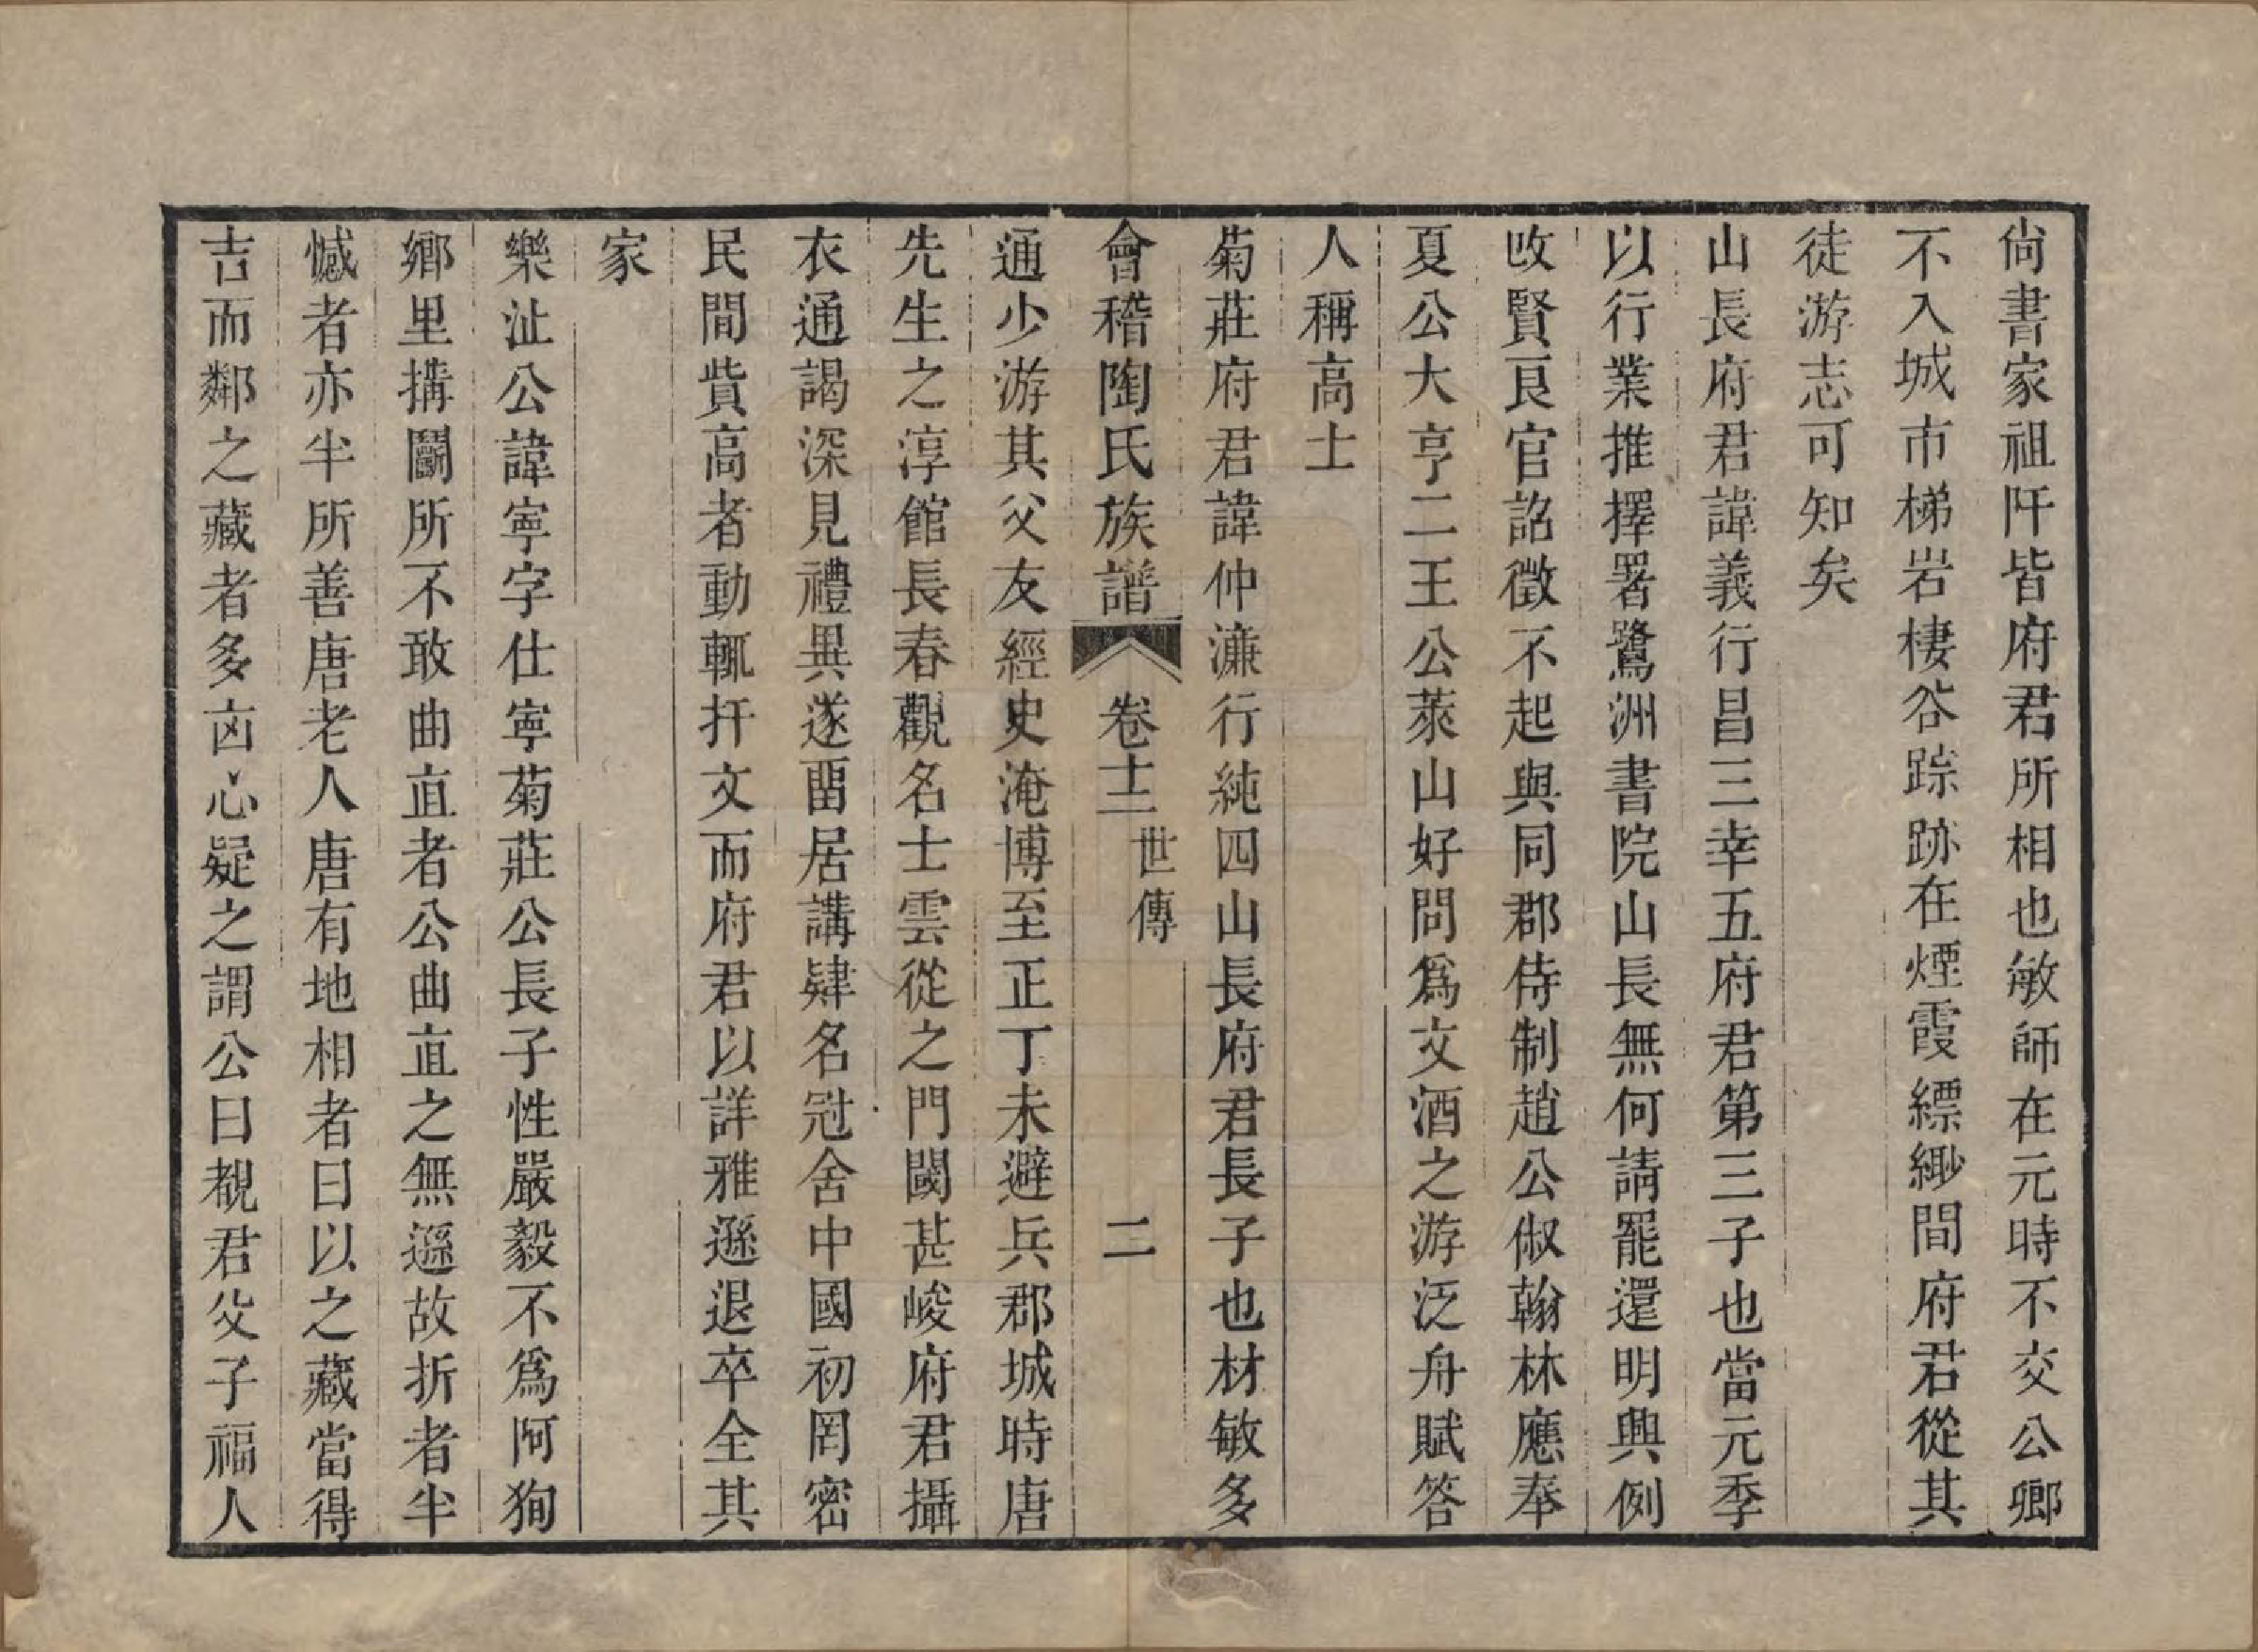 尙書家祖阡皆府君所相也敏師在元時不交公卿
不入城市梯岩棲谷踪跡在煙霞縹緲間府君從其
徒游志可知矣
山長府君諱義行昌三幸五府君第三子也當元季
以行業推擇署鷺洲書院山長無何請罷還明興例
攺賢良官詔徵不起與同郡侍制趙公俶翰林應奉
夏公大亨二王公萊山好問爲文酒之游泛舟賦答
人稱高士
菊莊府君諱仲濂行純四山長府君長子也材敏多
會稽陶氏族譜 卷十二 世傳 二
通少游其父友經史淹博至正丁未避兵郡城時唐
先生之淳館長春觀名士雲從之門閾甚峻府君攝
衣通謁深見禮異遂畱居講肄名冠舍中國初罔密
民間貲高者動輒扞文而府君以詳雅遜退卒全其
家
樂沚公諱寧字仕寧菊莊公長子性嚴毅不爲阿狥
鄉里搆鬬所不敢曲直者公曲直之無遜故折者半
憾者亦半所善唐老人唐有地相者曰以之藏當得
吉而鄰之藏者多凶心疑之謂公曰覩君父子福人